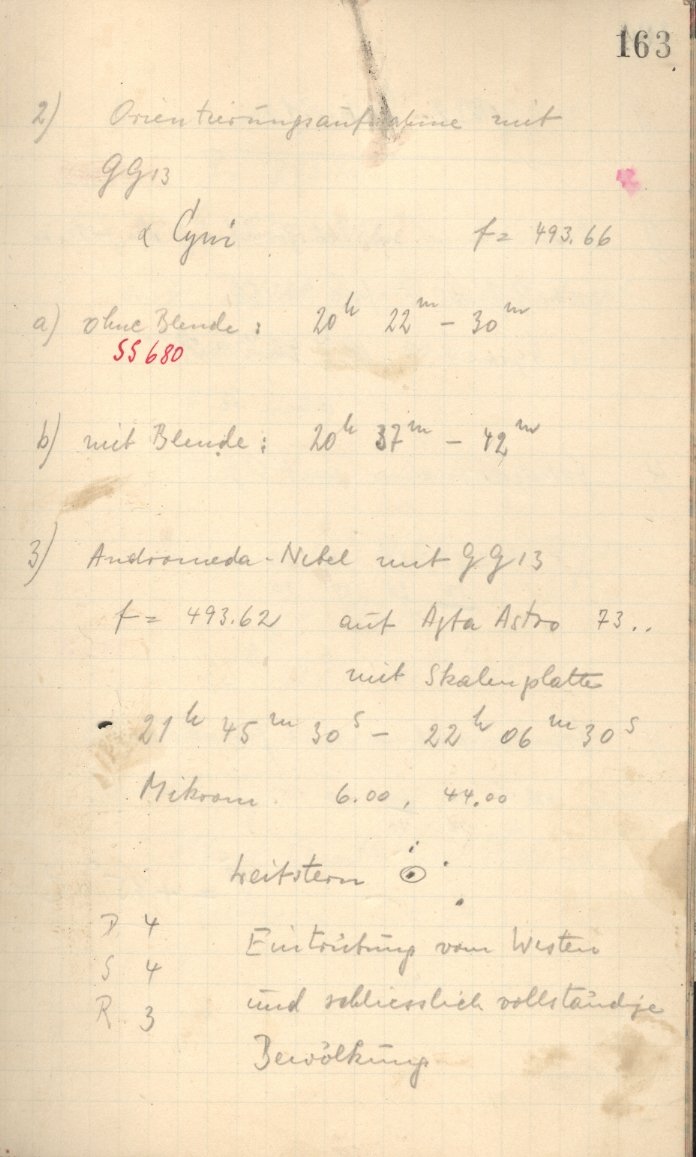 163
2) Orientierungsaufnahme mit
GG13
α Cygni f = 493.66
a) ohne Blende : 20h 22m - 30m
SS 680
b) mit Blende : 20h 37m - 42m
3) Andromeda-Nebel mit GG13
f = 493.62 auf Agfa Astro 73..
mit Skalenplatte
- 21h 45m 30s - 22h 06m 30s
Mikrom. 6.00, 44.00
Leitstern
D 4 Eintrübung vom Westen
S 4 und schliesslich vollständige
R 3 Bewölkung